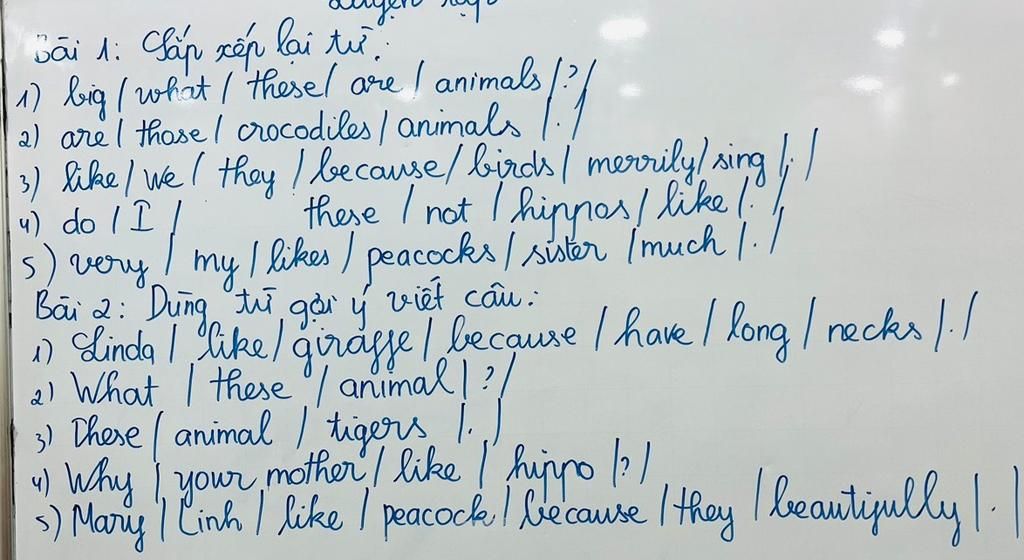 Luyện tập
Bài 1: Sắp xếp lại từ:
1) big / what / these / are / animals / ? /
2) are / those / crocodiles / animals / . /
3) like / we / they / because / birds / merrily / sing / . /
4) do / I / these / not / hippos / like / . /
5) very / my / likes / peacocks / sister / much / . /
Bài 2: Dùng từ gợi ý viết câu:
1) Linda / like / giraffe / because / have / long / necks / . /
2) What / these / animal / ? /
3) These / animal / tigers / . /
4) Why / your mother / like / hippo / ? /
5) Mary / Linh / like / peacock / because / they / beautifully / . /